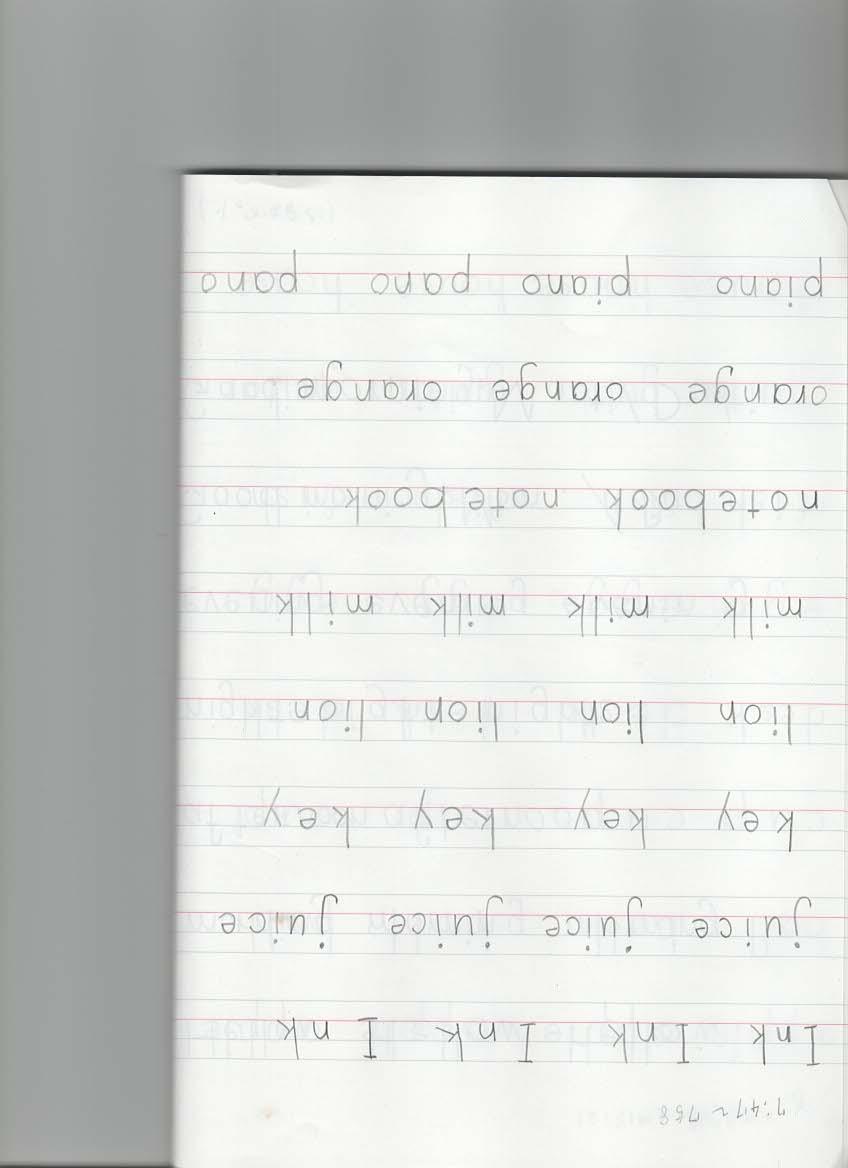 7:47 ~ 758
Ink Ink Ink Ink
juice juice juice juice
key key key key
lion lion lion lion
milk milk milk milk
notebook notebook
orange orange orange
piano piano pano pano